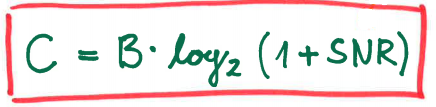 C = B · log₂ (1 + SNR)